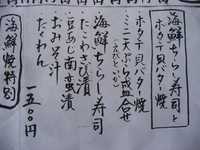 海鮮ちらし寿司と
ホタテ貝バター焼
ホタテ貝バター焼
ミニ天ぷら盛合せ
えびといか
海鮮ちらし寿司
たこわさび漬
豆あじ南蛮漬
おみそ汁
たくわん
一五〇〇円
海鮮焼特別